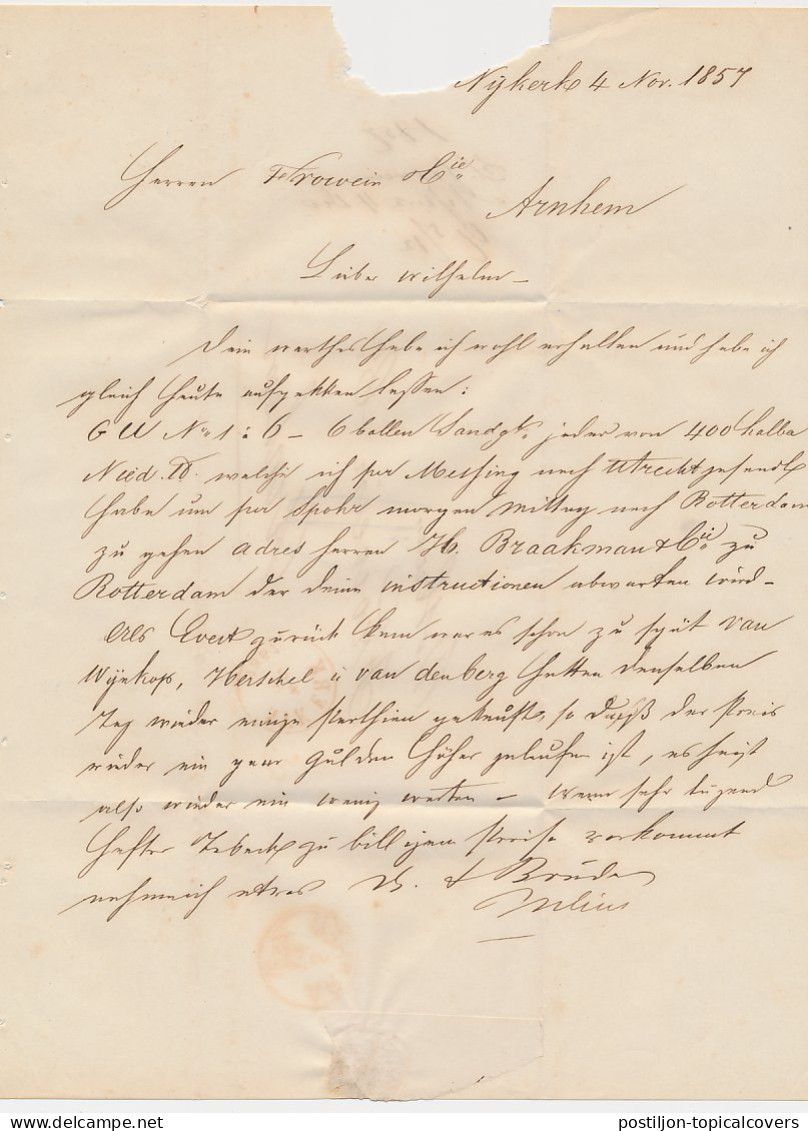 Nijkerk 4 Nov. 1857
Herren Frowein & Cie
Arnhem
Lieber Wilhelm –
Dein werthes habe ich wohl erhalten und habe ich
gleich heute aufpakken lassen:
No 1 : 6 – 6 ballen Sandgt. jeder von 400 halba
Nied. ℔. welche ich per Messing nach Utrecht gesandt
habe um per Spohr morgen Mittag nach Rotterdam
zu gehen adres Herren H. Braakman & Cie zu
Rotterdam der deine instructionen abwarten wird –
Als Evert zurück kam war es schon zu spät van
Wijnkop, Herschel u van den berg hatten denselben
Tag wieder einige Parthien gekauft, so daß der Preis
wieder ein paar Gulden höher gelaufen ist, es heist
also wieder ein wenig warten – wenn sehr
hafter Taback zu billigen Preise vorkommt
nehme ich etwas D. & Bruder
Julius
postiljon-topicalcovers